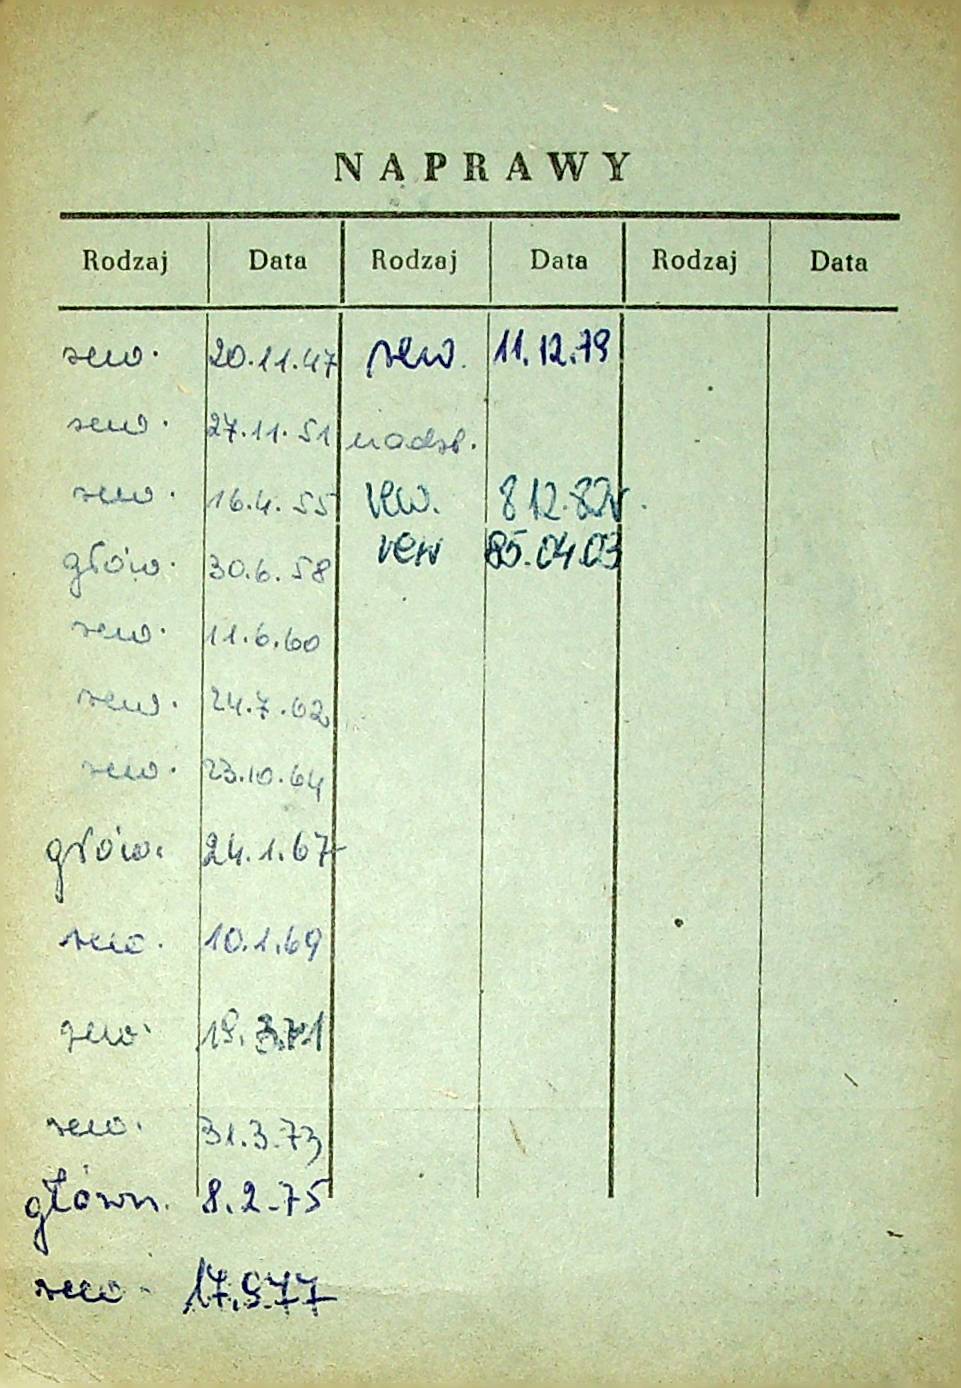 NAPRAWY
Rodzaj Data Rodzaj Data Rodzaj Data
rew. 20.11.47 rew. 11.12.79
rew. 27.11.51 nadsł.
rew. 16.4.55 rew. 8 12.82r.
głów. 30.6.58 rew 85.04.03
rew. 11.6.60
rew. 24.7.62
rew. 23.10.64
głów. 24.1.67
rew. 10.1.69
rew. 19.3.71
rew. 31.3.73
główn. 8.2.75
rew. 17.9.77